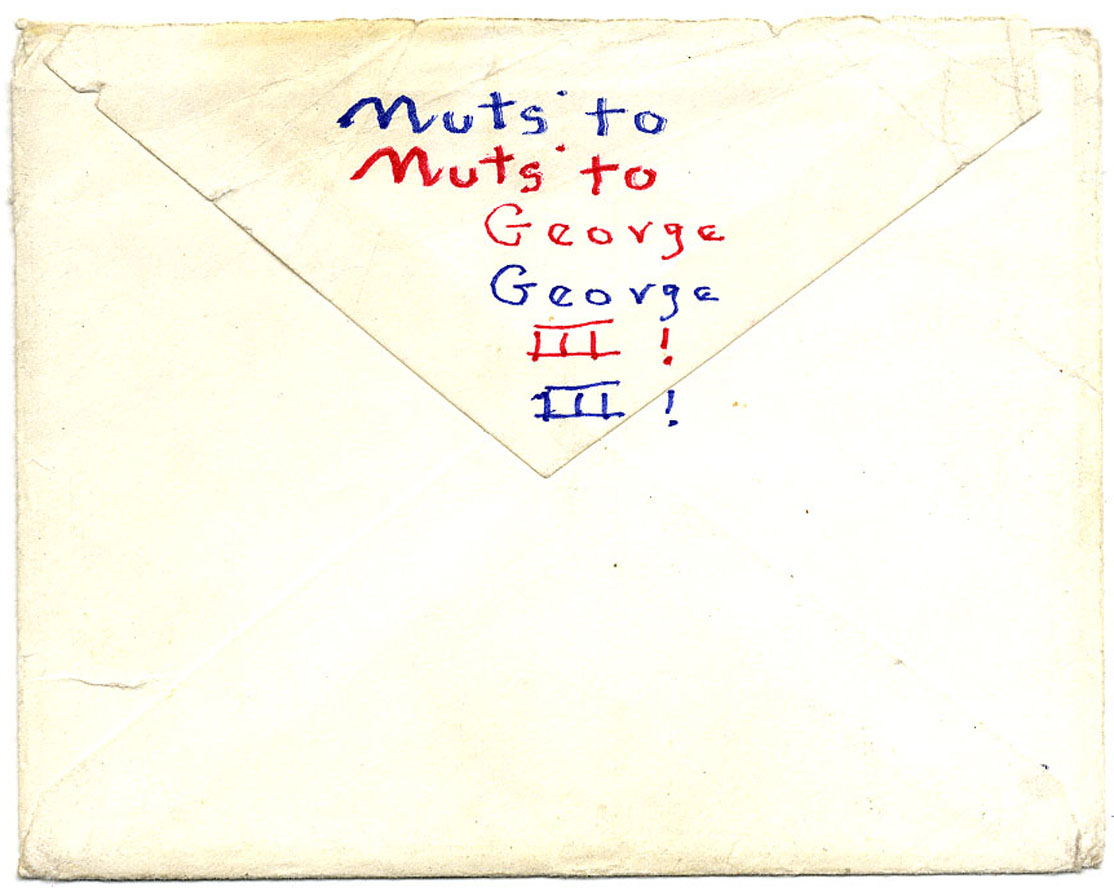 Nuts to
Nuts to
George
George
III !
III !